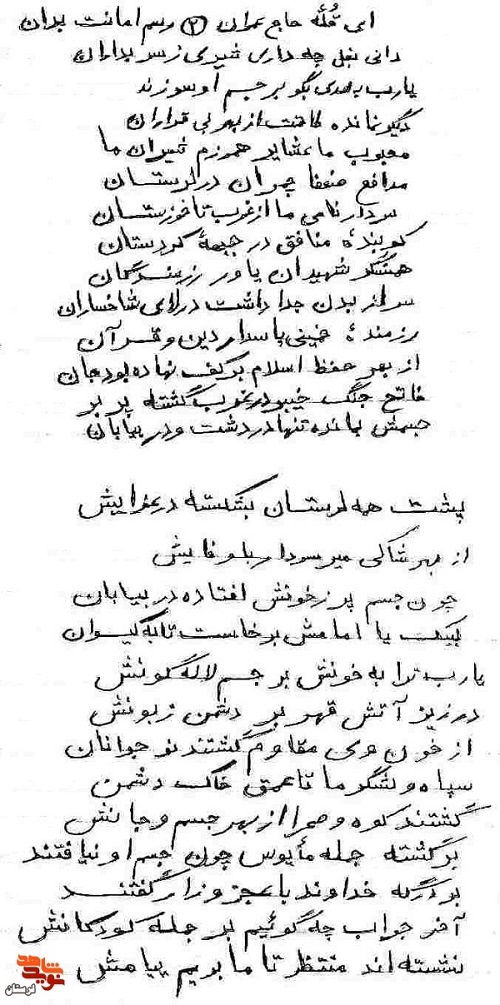 ای قلّه حاج عمران (۲) رسم امانت بدان
دانی بغل چه داری شیری ز سربداران
یارب بهدی بگو بر جسم او سوزند
دیگر نمانده طاقت از بهر بی قراران
محبوب ما عشایر همرزم شیران ما
مدافع ضعفا چمران در لرستان
سردار نامی ما از غرب تا خوزستان
کوبندهٔ منافق در جبههٔ کردستان
همسنگر شهیدان یاور رزمندگان
سر از بدن جدا داشت در لای شاخساران
رزمندهٔ خمینی پاسدار دین و قرآن
از بهر حفظ اسلام بر کف نهاده بود جان
فاتح جنگ خیبر در غرب گشته پر پر
جسمش بمانده تنها در دشت و در بیابان
پشت همه لرستان بشکسته در عزایش
از بهر شاکی میر سردار با وفایش
چون جسم پر ز خونش افتاده در بیابان
لبیک یا امامش برخاست تا به کیوان
یارب ترا به خونش بر جسم لاله گونش
در ریز آتش قهر بر دشمن زبونش
از خون وی مقاوم گشتند نوجوانان
سپاه و لشگر ما تا عمق خاک دشمن
گشتند کوه و صحرا از بهر جسم و جانش
برگشته جمله مأیوس چون جسم او نیافتند
بر درگه خداوند با عجز و زار گفتند
آخر جواب چه گوئیم بر جمله کودکانش
نشسته اند منتظر تا ما بریم پیامش
نوید شاهد
لرستان